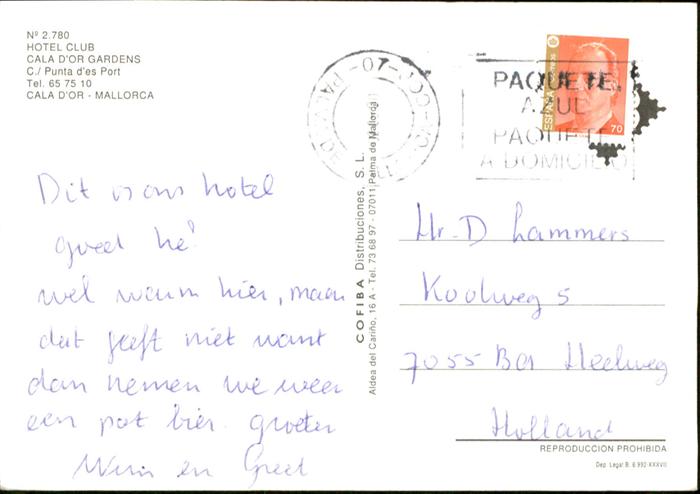 Nº 2.780
HOTEL CLUB
CALA D'OR GARDENS
C./ Punta d'es Port
Tel. 65 75 10
CALA D'OR - MALLORCA
Dit is ons hotel
goed he!
wel warm hier, maar
dat geeft niet want
dan nemen we weer
een pot bier. groeten
Wim en Greet
COFIBA Distribuciones, S. L.
Aldea del Cariño, 16 A - Tel. 73 68 97 - 07011 Palma de Mallorca
PAQUETE
AZUL
PAQUETE
A DOMICILIO
ESPAÑA
70
Hr. D Lammers
Koolweg 5
7055 Heelweg
Holland
REPRODUCCION PROHIBIDA
Dep. Legal B. 6.992-XXXVII